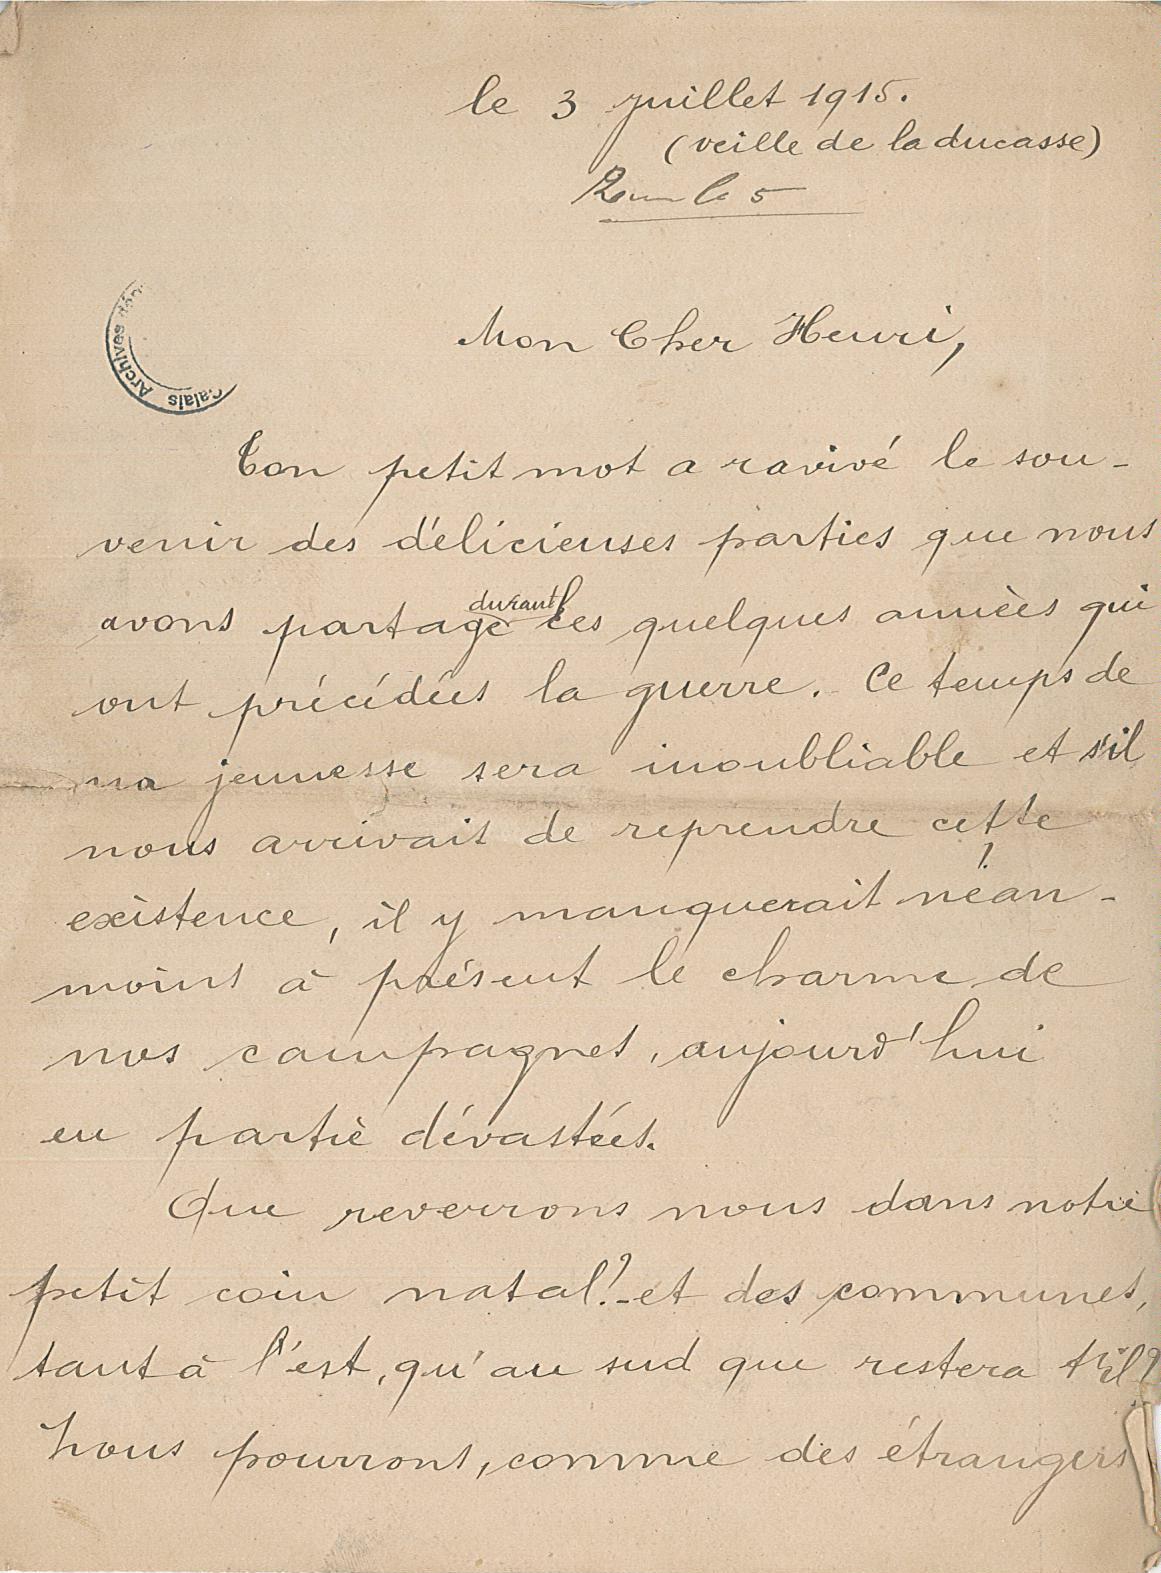 le 3 juillet 1915.
(veille de la ducasse)
le 5
Mon Cher Henri,
Archives dép
Calais
Ton petit mot a ravivé le sou-
venir des délicieuses parties que nous
avons partagé durant les quelques années qui
ont précédées la guerre. Ce temps de
ma jeunesse sera inoubliable et s'il
nous arrivait de reprendre cette
existence, il y manquerait néan-
moins à présent le charme de
nos campagnes, aujourd'hui
en partie dévastées.
Que reverrons nous dans notre
petit coin natal? - et des communes,
tant à l'est, qu'au sud que restera t'il?
Nous pourrons, comme des étrangers